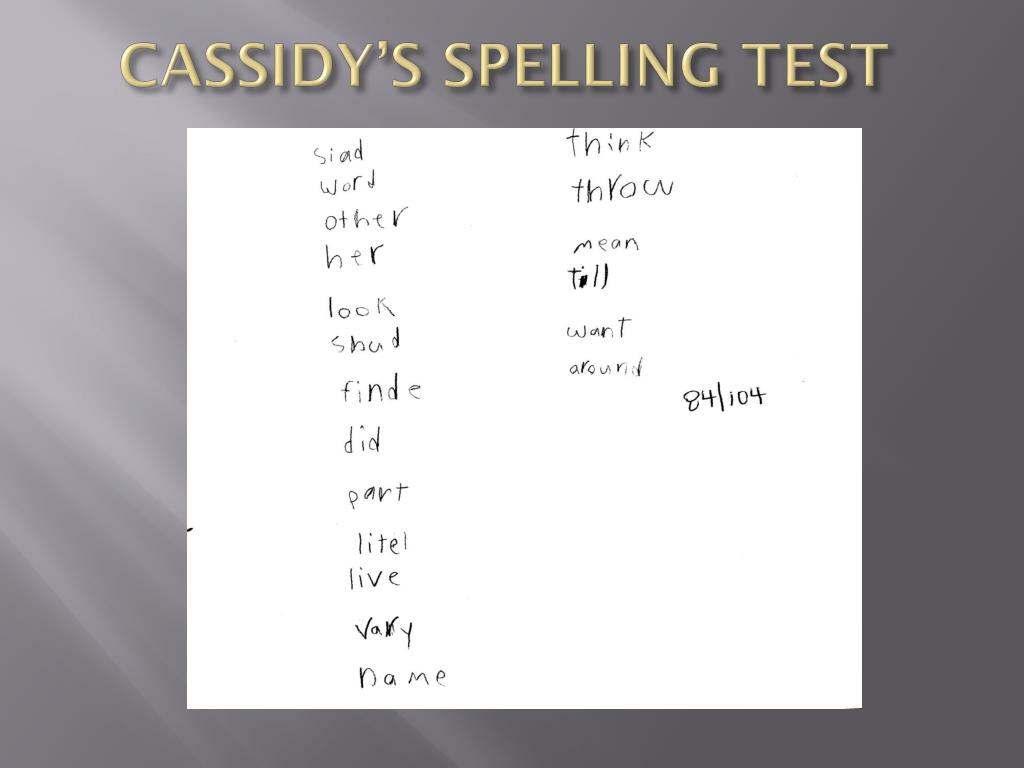 CASSIDY'S SPELLING TEST
siad
word
other
her
look
shud
finde
did
part
litel
live
vary
name
think
throw
mean
till
want
around
84/104